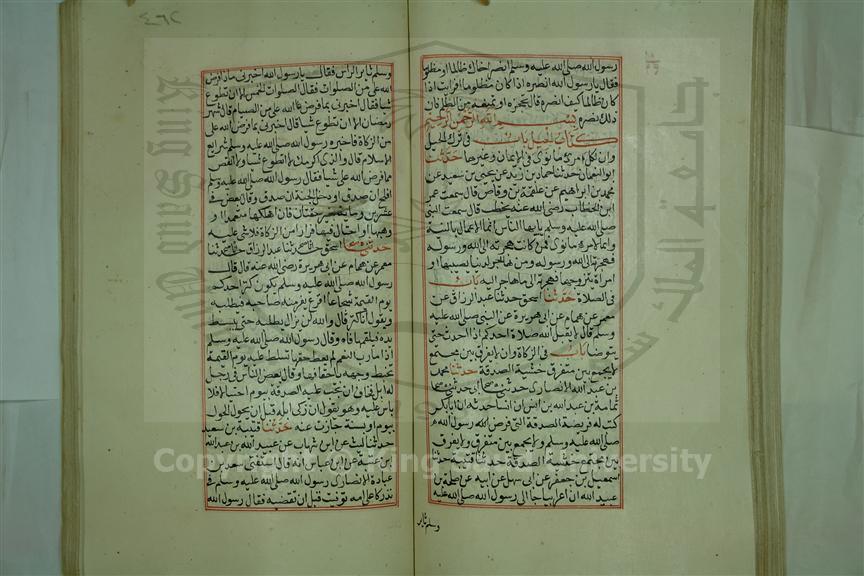 ٤٦٢
رسول الله صلى الله عليه وسلم انصر اخاك ظالما او مظلوما
فقال يا رسول الله انصره اذا كان مظلوما افرايت اذا
كان ظالما كيف انصره قال تحجزه او تمنعه من الظلم فان
ذلك نصره بسم الله الرحمن الرحيم
كتاب الحيل باب في ترك الحيل
وان لكل امرئ ما نوى في الايمان وغيرها حدثنا
ابو النعمان حدثنا حماد بن زيد عن يحيى بن سعيد عن
محمد بن ابراهيم عن علقمة بن وقاص قال سمعت عمر
ابن الخطاب رضي الله عنه يخطب قال سمعت النبي
صلى الله عليه وسلم يا ايها الناس انما الاعمال بالنية
وانما لامرئ ما نوى فمن كانت هجرته الى الله ورسوله
فهجرته الى الله ورسوله ومن هاجر لدنيا يصيبها او
امراة يتزوجها فهجرته الى ما هاجر اليه باب
في الصلاة حدثنا اسحق حدثنا عبد الرزاق عن
معمر عن همام عن ابي هريرة عن النبي صلى الله عليه
وسلم قال لا يقبل الله صلاة احدكم اذا احدث حتى
يتوضا باب في الزكاة وان لا يفرق بين مجتمع
ولا يجمع بين متفرق خشية الصدقة حدثنا محمد
بن عبد الله الانصاري حدثني حدثني
ثمامة بن عبد الله بن انس ان انسا حدثه ان ابا بكر
كتب له فريضة الصدقة التي فرض الله رسول الله
صلى الله عليه وسلم ولا يجمع بين متفرق ولا يفرق
بين مجتمع خشية الصدقة حدثنا قتيبة حدثنا
اسمعيل بن جعفر عن ابي سهل عن ابيه عن طلحة بن
عبيد الله ان اعرابيا جا الى رسول الله صلى الله عليه
وسلم ثاير
وسلم ثاير الراس فقال يا رسول الله اخبرني ماذا فرض
الله علي من الصلوات فقال الصلوات الخمس الا ان تطوع
شيا فقال اخبرني بما فرض الله علي من الصيام قال شهر
رمضان الا ان تطوع شيا قال اخبرني بما فرض الله علي
من الزكاة فاخبره رسول الله صلى الله عليه وسلم شرايع
الاسلام قال والذي اكرمك لا اتطوع شيا ولا انقص
مما فرض الله علي شيا فقال رسول الله صلى الله عليه وسلم
افلح ان صدق او دخل الجنة ان صدق وقال بعض في
عشرين وماية حقتان فان اهلكها متعمدا او
وهبها او احتال فيها فرارا من الزكاة فلا شي عليه
حدثني اسحق حدثنا عبد الرزاق حدثنا
معمر عن همام عن ابي هريرة رضي الله عنه قال قال
رسول الله صلى الله عليه وسلم يكون كنز احدكم
يوم القيمة شجاعا اقرع يفر منه صاحبه فيطلبه
ويقول انا كنزك قال والله لن يزال يطلبه حتى يبسط
يده فيلقمها فاه وقال رسول الله صلى الله عليه وسلم
اذا ما رب النعم لم يعط حقها تسلط عليه يوم القيمة
تخبط وجهه باخفافها وقال بعض الناس في رجل
له ابل فخاف ان تجب عليه الصدقة بيوم احتيالا فلا
باس عليه وهو يقول ان زكى ابله قبل ان يحول الحول
بيوم او بسنة جازت عنه حدثنا قتيبة بن سعيد
حدثنا ليث عن ابن شهاب عن عبيد الله بن عبد الله
بن عتبة عن ابن عباس انه قال استفتى سعد بن
عبادة الانصاري رسول الله صلى الله عليه وسلم في
نذر كان على امه توفيت قبل ان تقضيه فقال رسول الله
جامعة الملك سعود
King Saud University
Copyright © King Saud University